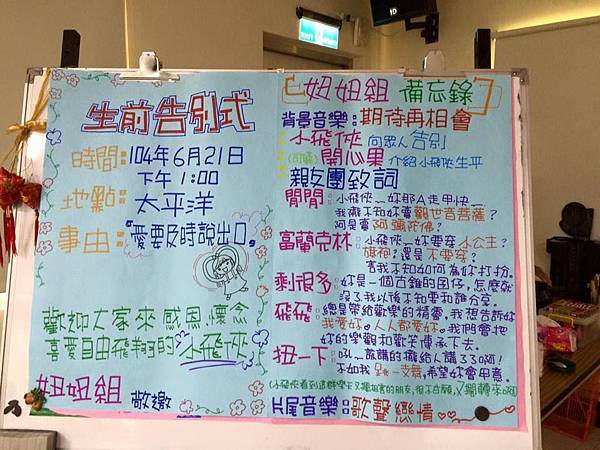 生前告別式
時間：104年6月21日
下午1:00
地點：太平洋
事由："愛要及時說出口"
歡迎大家來感恩、懷念
喜愛自由飛翔的"小飛俠"
妞妞組 敬邀
妞妞組 備忘錄
背景音樂：期待再相會
小飛俠 向眾人告別
開心果 介紹小飛俠生平
親友團致詞
閒閒：小飛俠～妳那A走甲快～
我嘸不知妳要觀世音菩薩？
阿是要阿彌陀佛？
富蘭克林：小飛俠～妳要穿小公主？
旗袍？還是不要穿？
害我不知如何為妳打扮。
剩很多：妳是一個古錐的囡仔，怎麼就
沒了我以後不知要和誰分享。
飛飛：總是帶給歡樂的精靈，我想告訴妳
我愛妳 人人都愛妳 我們會把
妳的樂觀和歡笑傳承下去。
扭一下：吼～該講的攏給人講33啊！
不如我跳一支舞，希望妳會甲意。
片尾音樂：歌聲戀情
EXIT